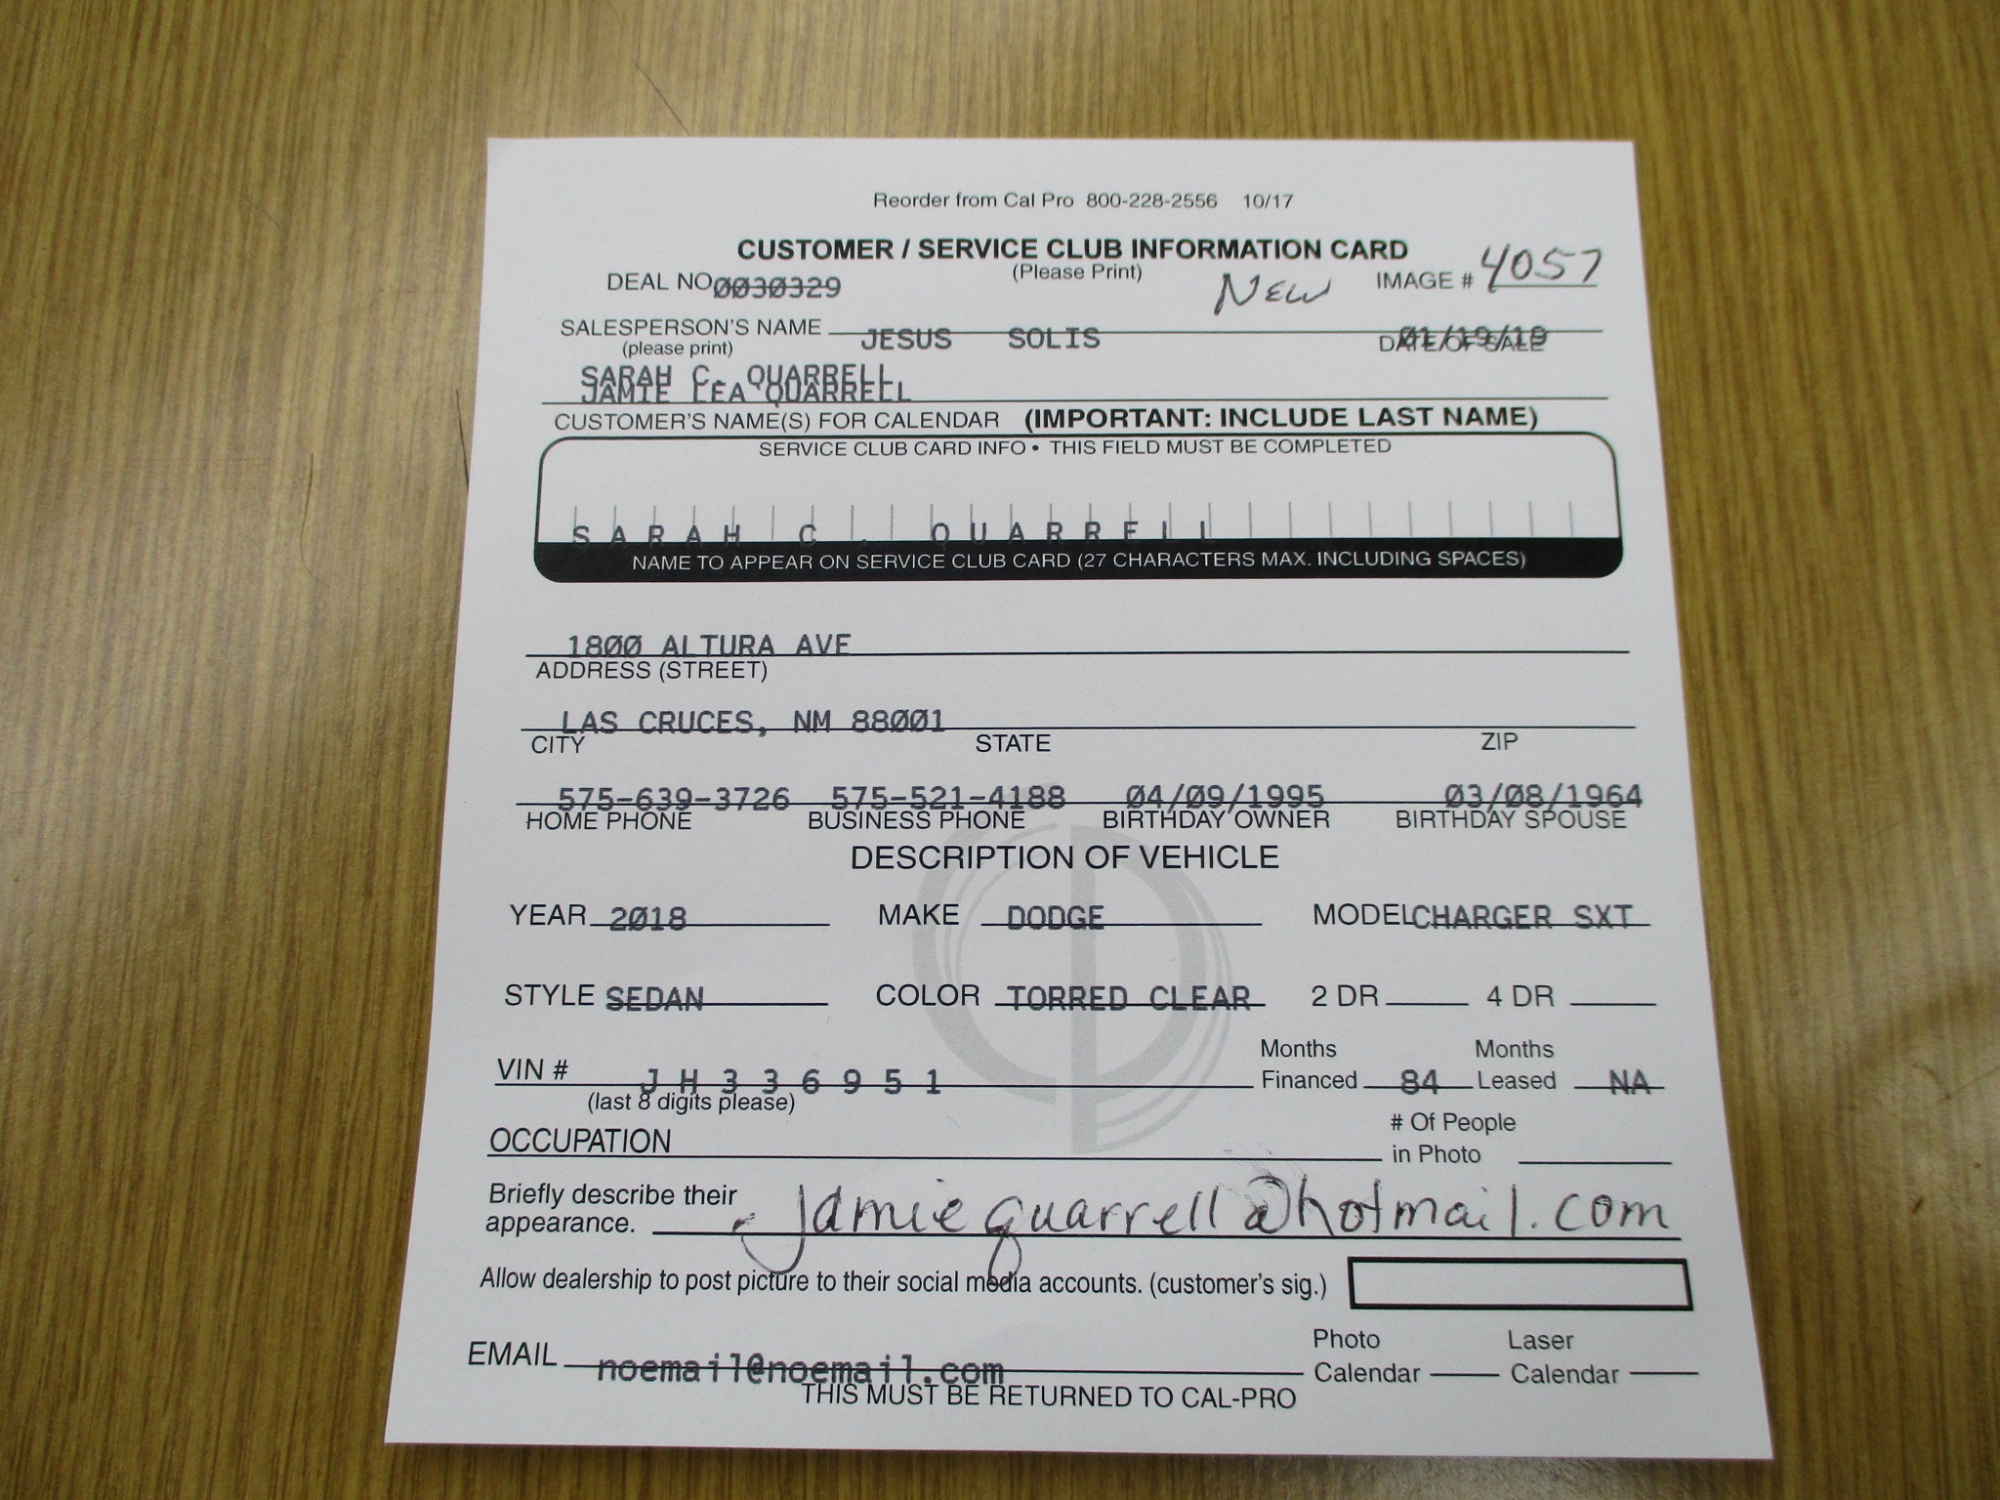 Reorder from Cal Pro 800-228-2556 10/17
CUSTOMER / SERVICE CLUB INFORMATION CARD
(Please Print)
DEAL NO 0030329 New IMAGE # 4057
SALESPERSON'S NAME JESUS SOLIS 01/19/19
(please print) DATE OF SALE
SARAH C. QUARRELL
JAMIE LEA QUARRELL
CUSTOMER'S NAME(S) FOR CALENDAR (IMPORTANT: INCLUDE LAST NAME)
SERVICE CLUB CARD INFO • THIS FIELD MUST BE COMPLETED
SARAH C. QUARRELL
NAME TO APPEAR ON SERVICE CLUB CARD (27 CHARACTERS MAX. INCLUDING SPACES)
1800 ALTURA AVE
ADDRESS (STREET)
LAS CRUCES, NM 88001
CITY STATE ZIP
575-639-3726 575-521-4188 04/09/1995 03/08/1964
HOME PHONE BUSINESS PHONE BIRTHDAY OWNER BIRTHDAY SPOUSE
DESCRIPTION OF VEHICLE
YEAR 2018 MAKE DODGE MODEL CHARGER SXT
STYLE SEDAN COLOR TORRED CLEAR 2 DR 4 DR
Months Months
VIN # JH336951 Financed 84 Leased NA
(last 8 digits please)
# Of People
OCCUPATION in Photo
Briefly describe their
appearance. jamiequarrell@hotmail.com
Allow dealership to post picture to their social media accounts. (customer's sig.)
Photo Laser
EMAIL noemail@noemail.com Calendar Calendar
THIS MUST BE RETURNED TO CAL-PRO